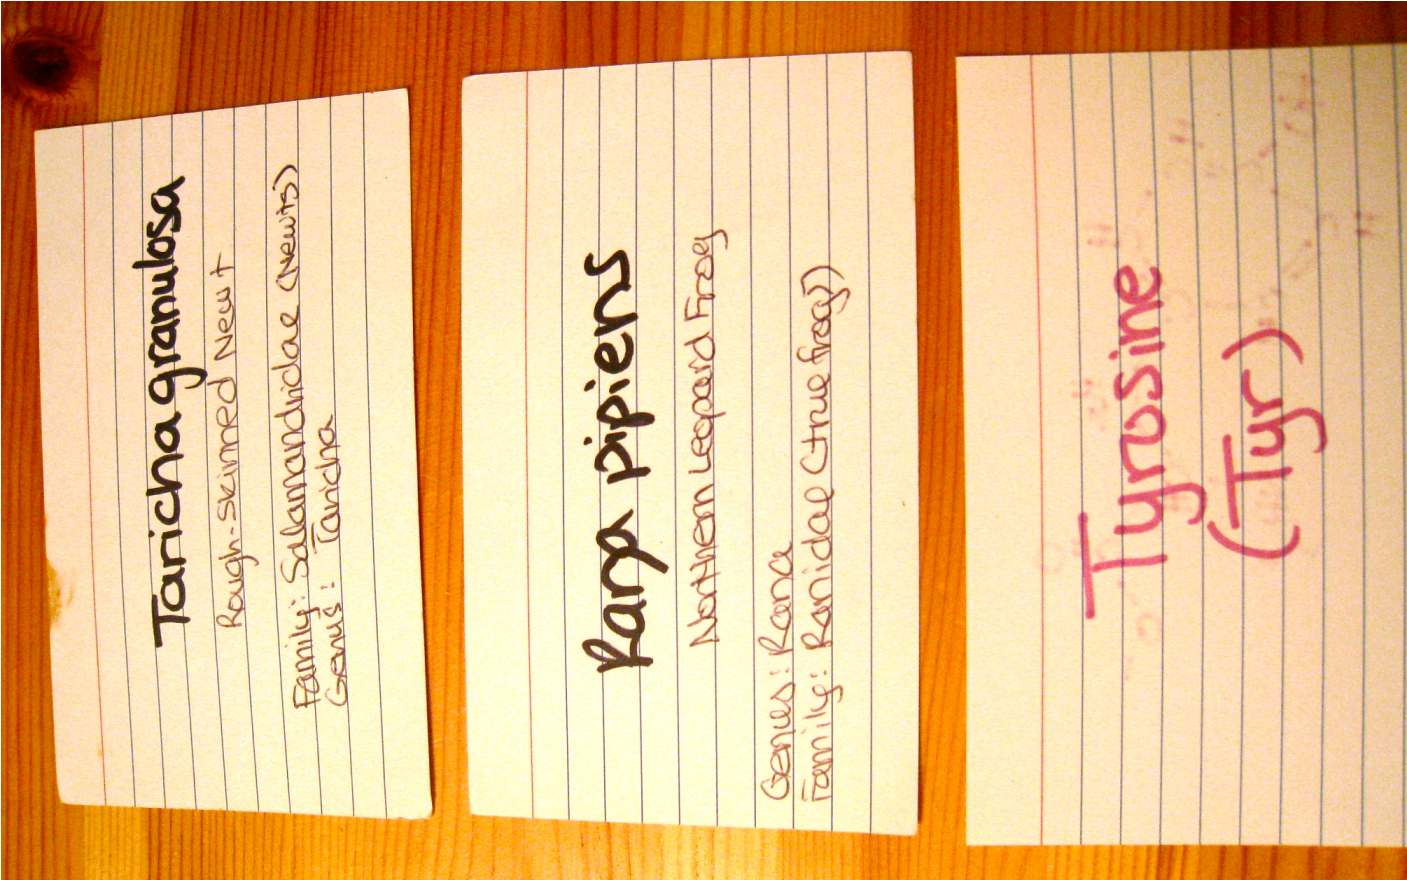 Taricha granulosa
Rough-skinned Newt
Family: Salamandridae (Newts)
Genus: Taricha
Rana pipiens
Northern Leopard Frog
Genus: Rana
Family: Ranidae (true frogs)
Tyrosine
(Tyr)